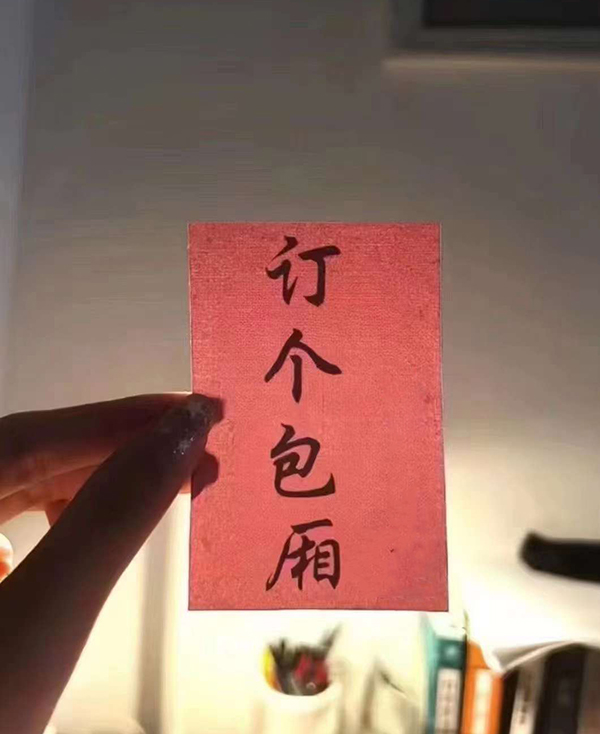 订个包厢